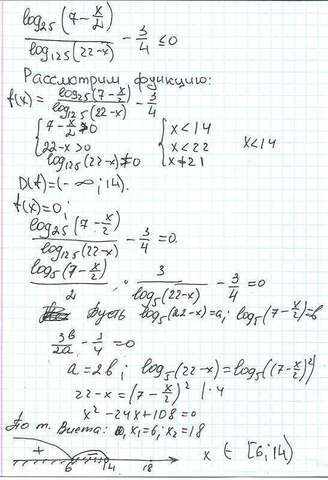 log₂₅(7-x/2) / log₁₂₅(22-x) - 3/4 ≤0
Рассмотрим функцию:
f(x) = log₂₅(7-x/2) / log₁₂₅(22-x) - 3/4
{ 7-x/2 >0 { x<14
22-x>0 x<22 x<14
log₁₂₅(22-x)≠0 x≠21
D(f)=(-∞;14).
f(x)=0;
log₂₅(7-x/2) / log₁₂₅(22-x) - 3/4 =0.
log₅(7-x/2) / 2 · 3 / log₅(22-x) - 3/4 =0
Пусть log₅(22-x)=a; log₅(7-x/2)=b
3b/2a - 3/4 =0
a=2b; log₅(22-x)=log₅((7-x/2)²)
22-x=(7-x/2)² |·4
x²-24x+108=0
По т. Виета: x₁=6; x₂=18
+ - 6 14 18 x ∈ [6;14)